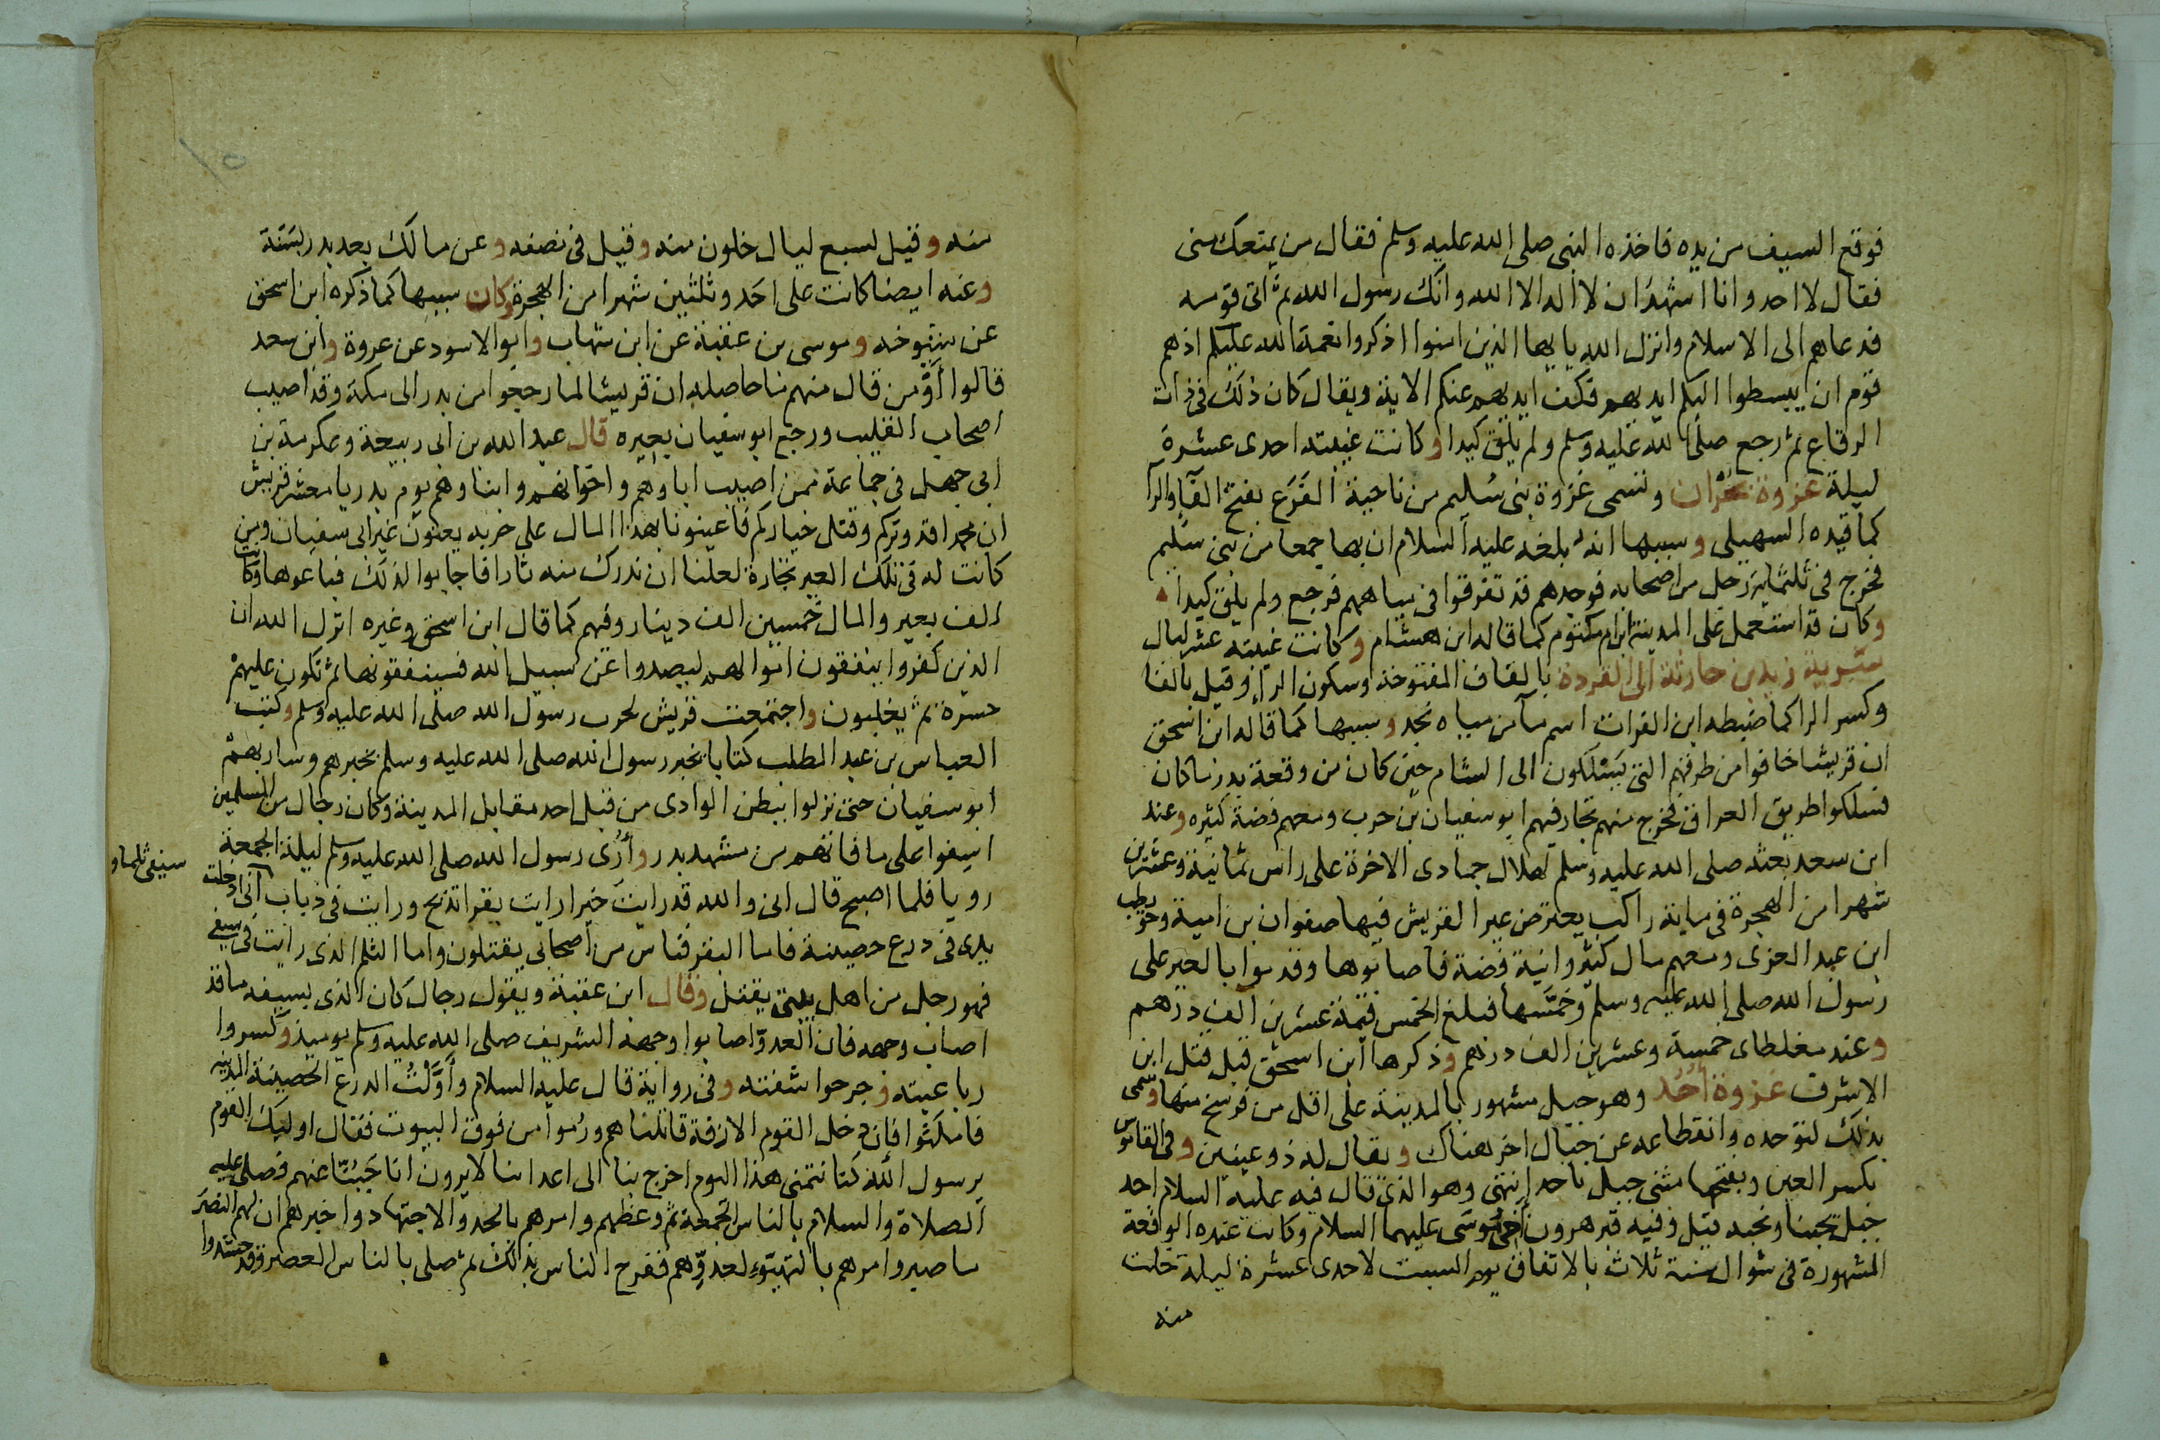 فوقع السيف من يده فاخذه النبي صلى الله عليه وسلم فقال من يمنعك مني
فقال لا احد وانا اشهد ان لا اله الا الله وانك رسول الله ثم اتى قومه
فدعاهم الى الاسلام وانزل الله يا ايها الذين امنوا اذكروا نعمة الله عليكم اذ هم
قوم ان يبسطوا اليكم ايديهم فكف ايديهم عنكم الاية ويقال كان ذلك في ذات
الرقاع ثم رجع صلى الله عليه وسلم ولم يلق كيدا وكانت غيبته احدى عشرة
ليلة غزوة بحران وتسمى غزوة بني سليم من ناحية الفرع بفتح الفا والرا
كما قيده السهيلي وسببها انه بلغه عليه السلام ان بها جمعا من بني سليم
فخرج في ثلثماية رجل من اصحابه فوجدهم قد تفرقوا في مياههم فرجع ولم يلق كيدا
وكان قد استعمل على المدينة ابن ام مكتوم كما قاله ابن هشام وكانت غيبته عشر ليال
سرية زيد بن حارثة الى القردة بالقاف المفتوحة وسكون الرا وقيل بالفا
وكسر الرا كما ضبطه ابن الفرات اسم ما من مياه نجد وسببها كما قاله ابن اسحق
ان قريشا خافوا من طرقهم التي يسلكون الى الشام حين كان من وقعة بدر ما كان
فسلكوا طريق العراق فخرج منهم تجار فيهم ابو سفيان بن حرب ومعهم فضة كثيره وعند
ابن سعد بعثه صلى الله عليه وسلم لهلال جمادى الاخرة على راس ثمانية وعشرين
شهرا من الهجرة في ماية راكب يعترض عير القريش فيها صفوان بن امية وحويطب
ابن عبد العزى ومعهم مال كثير وانية فضة فاصابوها وقدموا بالعير على
رسول الله صلى الله عليه وسلم وخمسها فبلغ الخمس قيمة عشرين الف درهم
وعند مغلطاى خمسة وعشرين الف درهم وذكرها ابن اسحق قبل قتل ابن
الاشرف غزوة احد وهو جبل مشهور بالمدينة على اقل من فرسخ منها وسمى
بذلك لتوحده وانقطاعه عن جبال اخر هناك ويقال له ذو عينين وفي القاموس
بكسر العين وبفتحها مثنى جبل باحد انتهى وهو الذي قال فيه عليه السلام احد
جبل يحبنا ونحبه قيل وفيه قبر هرون اخي موسى عليهما السلام وكانت عنده الوقعة
المشهورة في شوال سنة ثلاث بالاتفاق يوم السبت لاحدى عشرة ليلة خلت
منه
١٥
منه وقيل لسبع ليال خلون منه وقيل في نصفه وعن مالك بعد بدر بسنة
وعنه ايضا كانت على احد وثلثين شهرا من الهجرة وكان سببها كما ذكره ابن اسحق
عن شيوخه وموسى بن عقبة عن ابن شهاب وابو الاسود عن عروة وابن سعد
قالوا او من قال منهم ما حاصله ان قريشا لما رجعوا من بدر الى مكة وقد اصيب
اصحاب القليب ورجع ابو سفيان بعيره قال عبد الله بن ابي ربيعة وعكرمة بن
ابي جهل في جماعة ممن اصيب اباوهم واخوانهم وابناوهم يوم بدر يا معشر قريش
ان محمدا قد وتركم وقتل خياركم فاعينونا بهذا المال على حربه يعنون عير ابي سفيان ومن
كانت له في تلك العير تجارة لعلنا ان ندرك منه ثارا فاجابوا لذلك فباعوها وكانت
الف بعير والمال خمسين الف دينار وفيهم كما قال ابن اسحق وغيره انزل الله ان
الذين كفروا ينفقون اموالهم ليصدوا عن سبيل الله فسينفقونها ثم تكون عليهم
حسرة ثم يغلبون واجتمعت قريش لحرب رسول الله صلى الله عليه وسلم وكتب
العباس بن عبد المطلب كتابا يخبر رسول الله صلى الله عليه وسلم بخبرهم وسار بهم
ابو سفيان حتى نزلوا ببطن الوادى من قبل احد مقابل المدينة وكان رجال من المسلمين
اسفوا على ما فاتهم من مشهد بدر وارى رسول الله صلى الله عليه وسلم ليلة الجمعة
رويا فلما اصبح قال اني والله قد رايت خيرا رايت بقرا تذبح ورايت في ذباب
سيفي ثلما و
اني ادخلت
يدى في درع حصينة فاما البقر فناس من اصحابي يقتلون واما الثلم الذى رايت في سيفي
فهو رجل من اهل بيتي يقتل وقال ابن عقبة ويقول رجال كان الذى بسيفه ما قد
اصاب وجهه فان العدو اصابوا وجهه الشريف صلى الله عليه وسلم يوميذ وكسروا
رباعيته وجرحوا شفته وفي رواية قال عليه السلام واولت الدرع الحصينة المدينة
فامكثوا فان دخل القوم الازقة قاتلناهم ورموا من فوق البيوت فقال اوليك القوم
يرسول الله كنا نتمنى هذا اليوم اخرج بنا الى اعداينا لا يرون انا جبنا عنهم فصلى عليه
الصلاة والسلام بالناس الجمعة ثم وعظهم وامرهم بالجد والاجتهاد واخبرهم ان لهم النصر
ما صبروا وامرهم بالتهيؤ لعدوهم ففرح الناس بذلك ثم صلى بالناس العصر وقد حشدوا